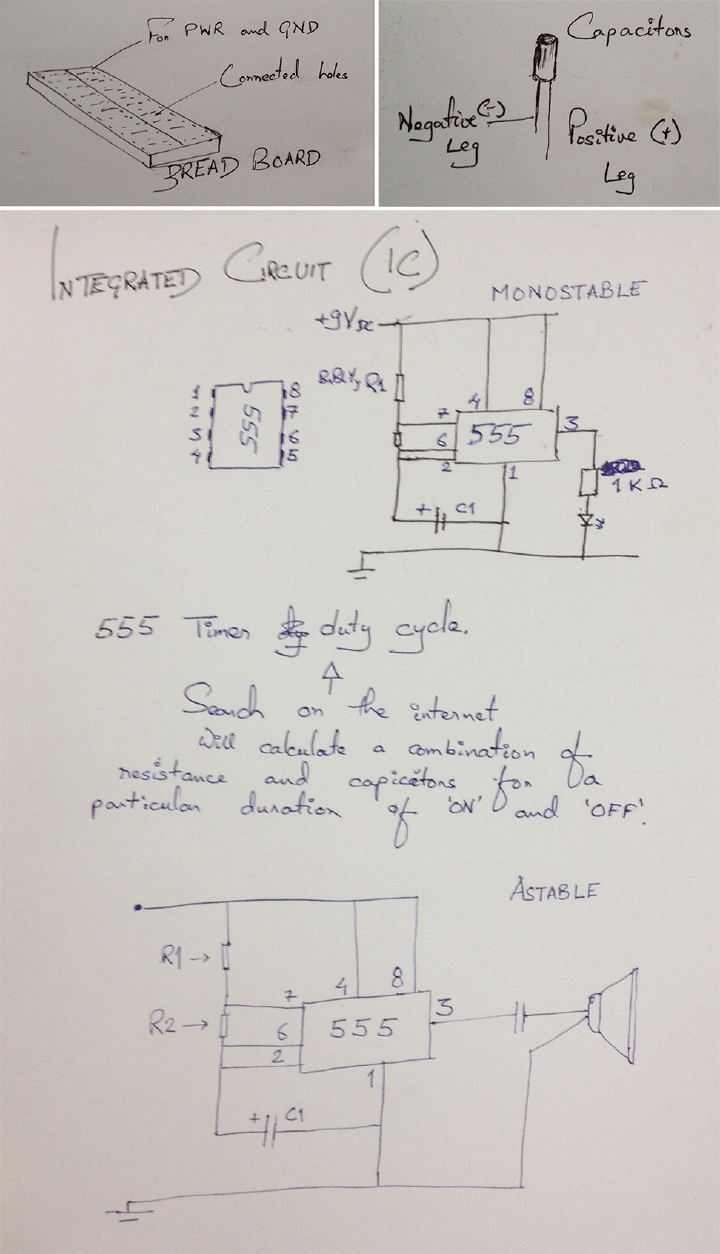 For PWR and GND
Connected holes
BREAD BOARD
Capacitors
Negative (-)
Leg
Positive (+)
Leg
INTEGRATED CIRCUIT (IC)
MONOSTABLE
+9VDC
R1
1 8
2 7
3 6
4 5
555
4 8
7
6
2
555
3
1
1KΩ
+ C1
555 Timer duty cycle.
Search on the internet
will calculate a combination of
resistance and capicetors for a
particular duration of 'ON' and 'OFF'.
ASTABLE
R1
R2
4 8
7
6
2
555
3
1
+ C1